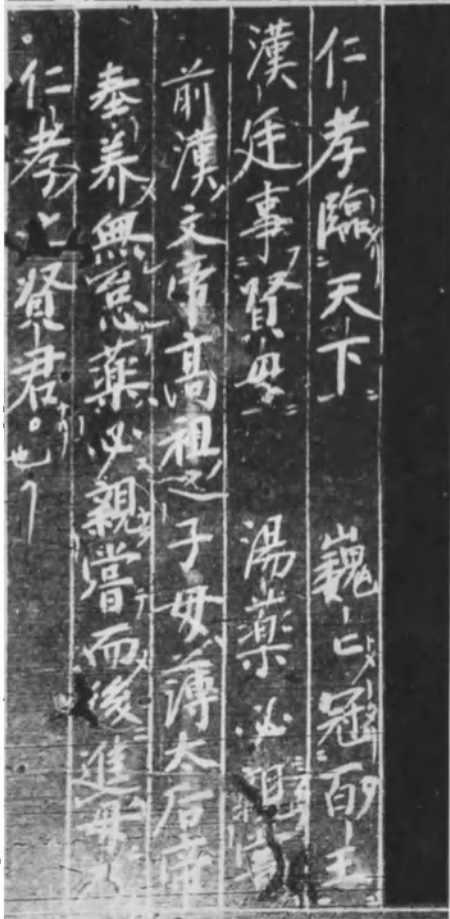 仁孝臨天下 巍〻冠百王
漢廷事賢母 湯薬必親嘗
前漢文帝高祖之子母薄太后帝
奉養無怠薬必親嘗而後進母
仁孝之賢君也